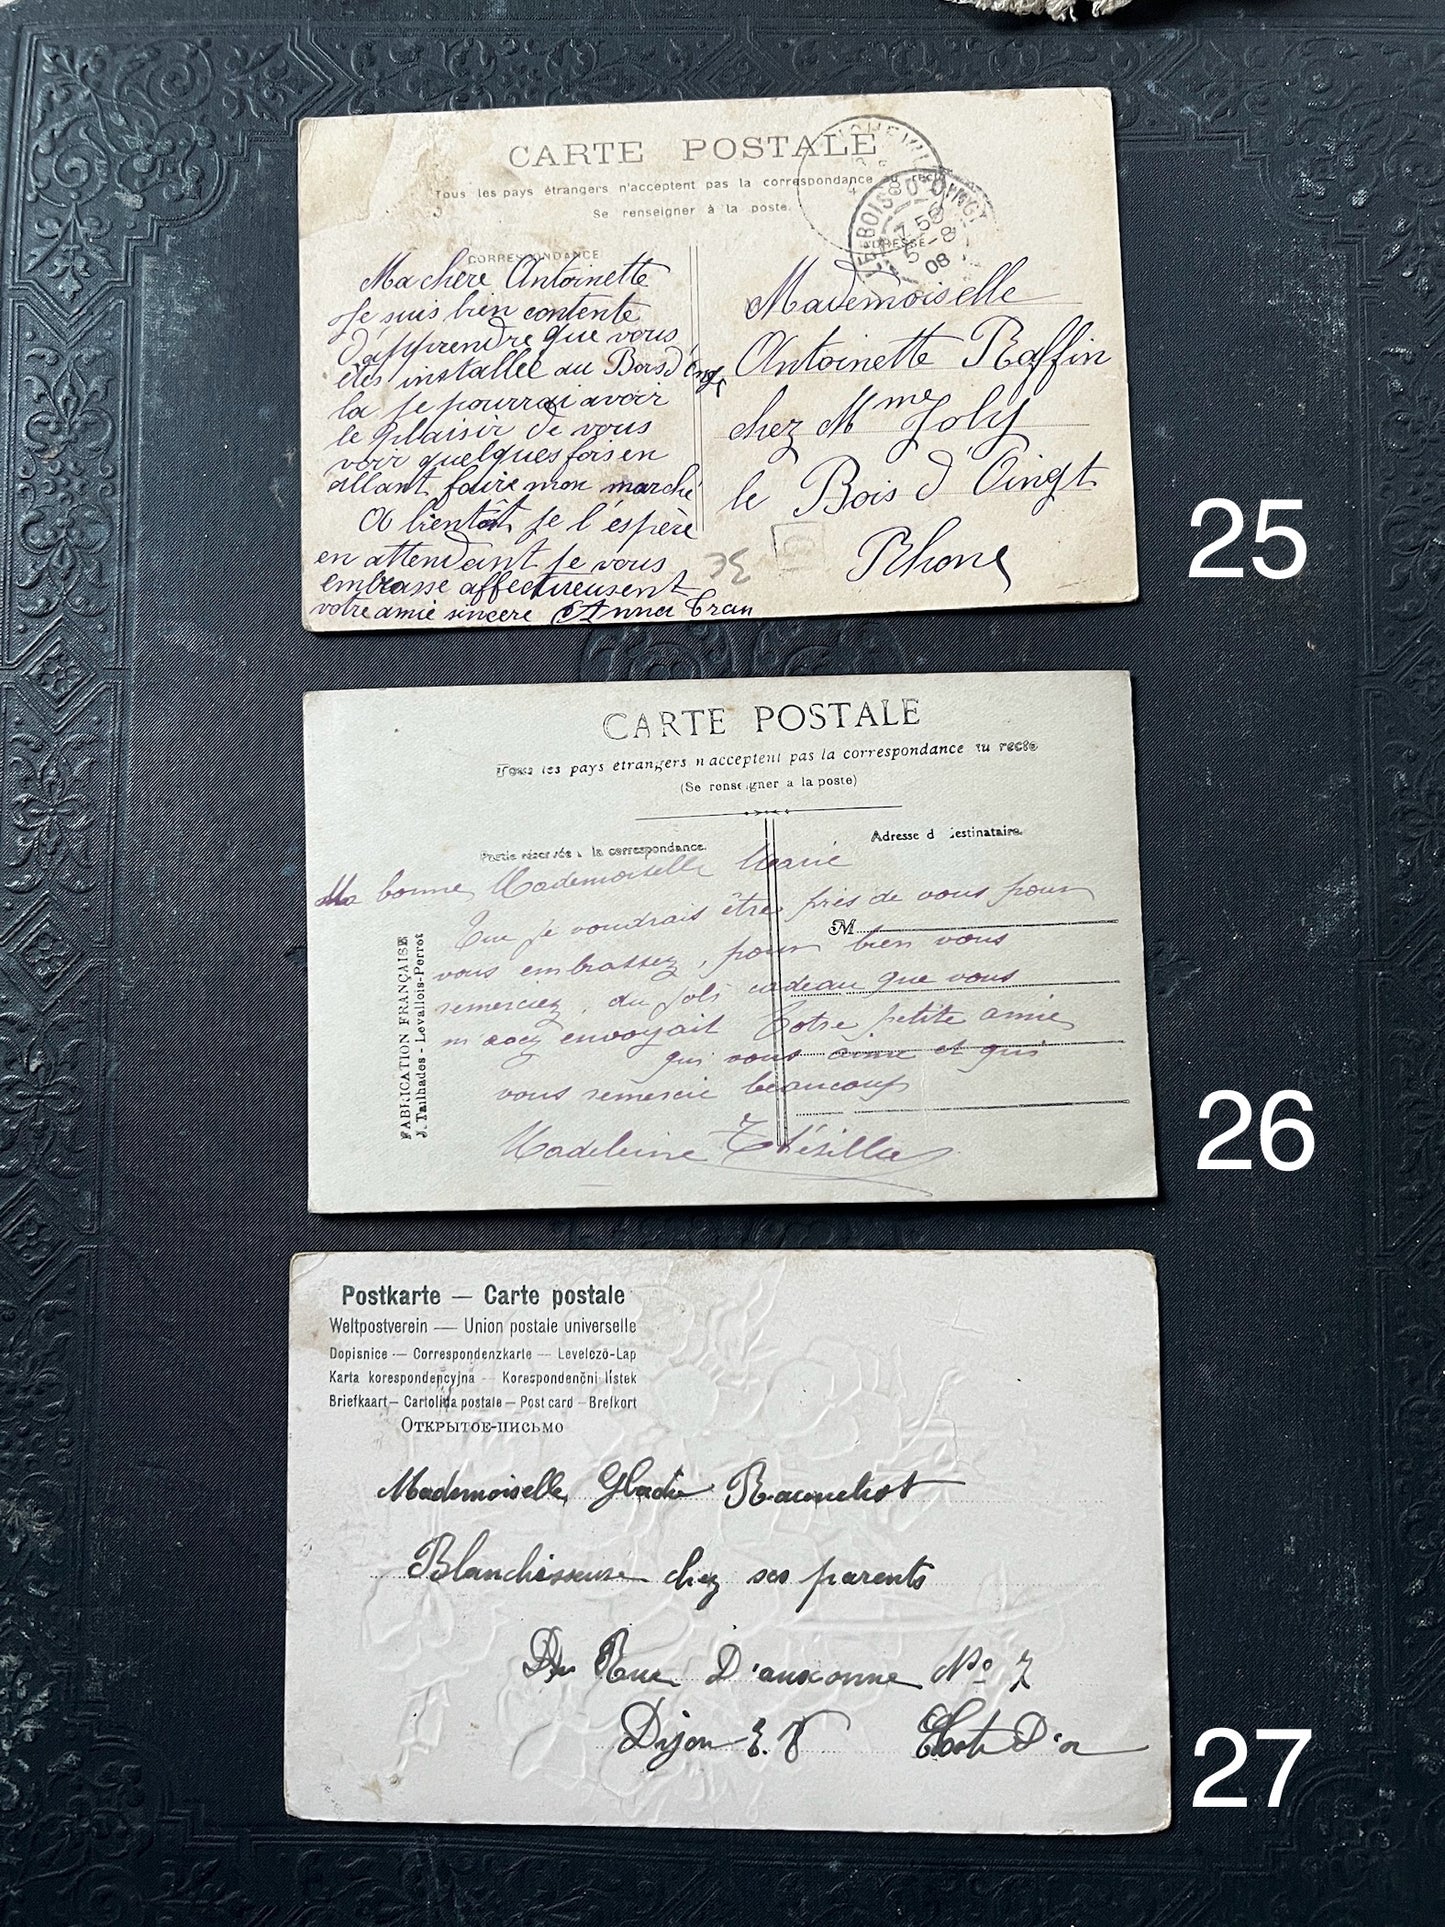 CARTE POSTALE
Tous les pays étrangers n'acceptent pas la correspondance au recto
Se renseigner à la poste.
CORRESPONDANCE
ADRESSE
LE-BOIS-D'OINGT
7 50
5-8
08
Ma chère Antoinette
Je suis bien contente
d'apprendre que vous
êtes installée au Bois d'Oingt
la je pourrai avoir
le plaisir de vous
voir quelques fois en
allant faire mon marché
A bientôt je l'espère
en attendant je vous
embrasse affectueusent
votre amie sincère Anna
Mademoiselle
Antoinette Raffin
chez Mme Joly
le Bois d'Oingt
Rhone
3E
25
CARTE POSTALE
Tous les pays étrangers n'acceptent pas la correspondance au recto
(Se renseigner a la poste)
Partie réservée à la correspondance.
Adresse d destinataire.
M
FABRICATION FRANÇAISE
J. Tailhades - Levallois-Perret
Ma bonne Mademoiselle Marie
Que je voudrais être près de vous pour
vous embrassez, pour bien vous
remerciez du joli cadeau que vous
m'avez envoyait Votre petite amie
qui vous aime et qui
vous remercie beaucoup
Madeleine
26
Postkarte — Carte postale
Weltpostverein — Union postale universelle
Dopisnice — Correspondenzkarte — Levelezö-Lap
Karta korespondencyjna — Korespondenční lístek
Briefkaart — Cartolida postale — Post card — Brefkort
Открытое-письмо
Mademoiselle
Blanchisseuse chez ses parents
Rue D'auxonne No 7
Dijon E.V Cote D'or
27